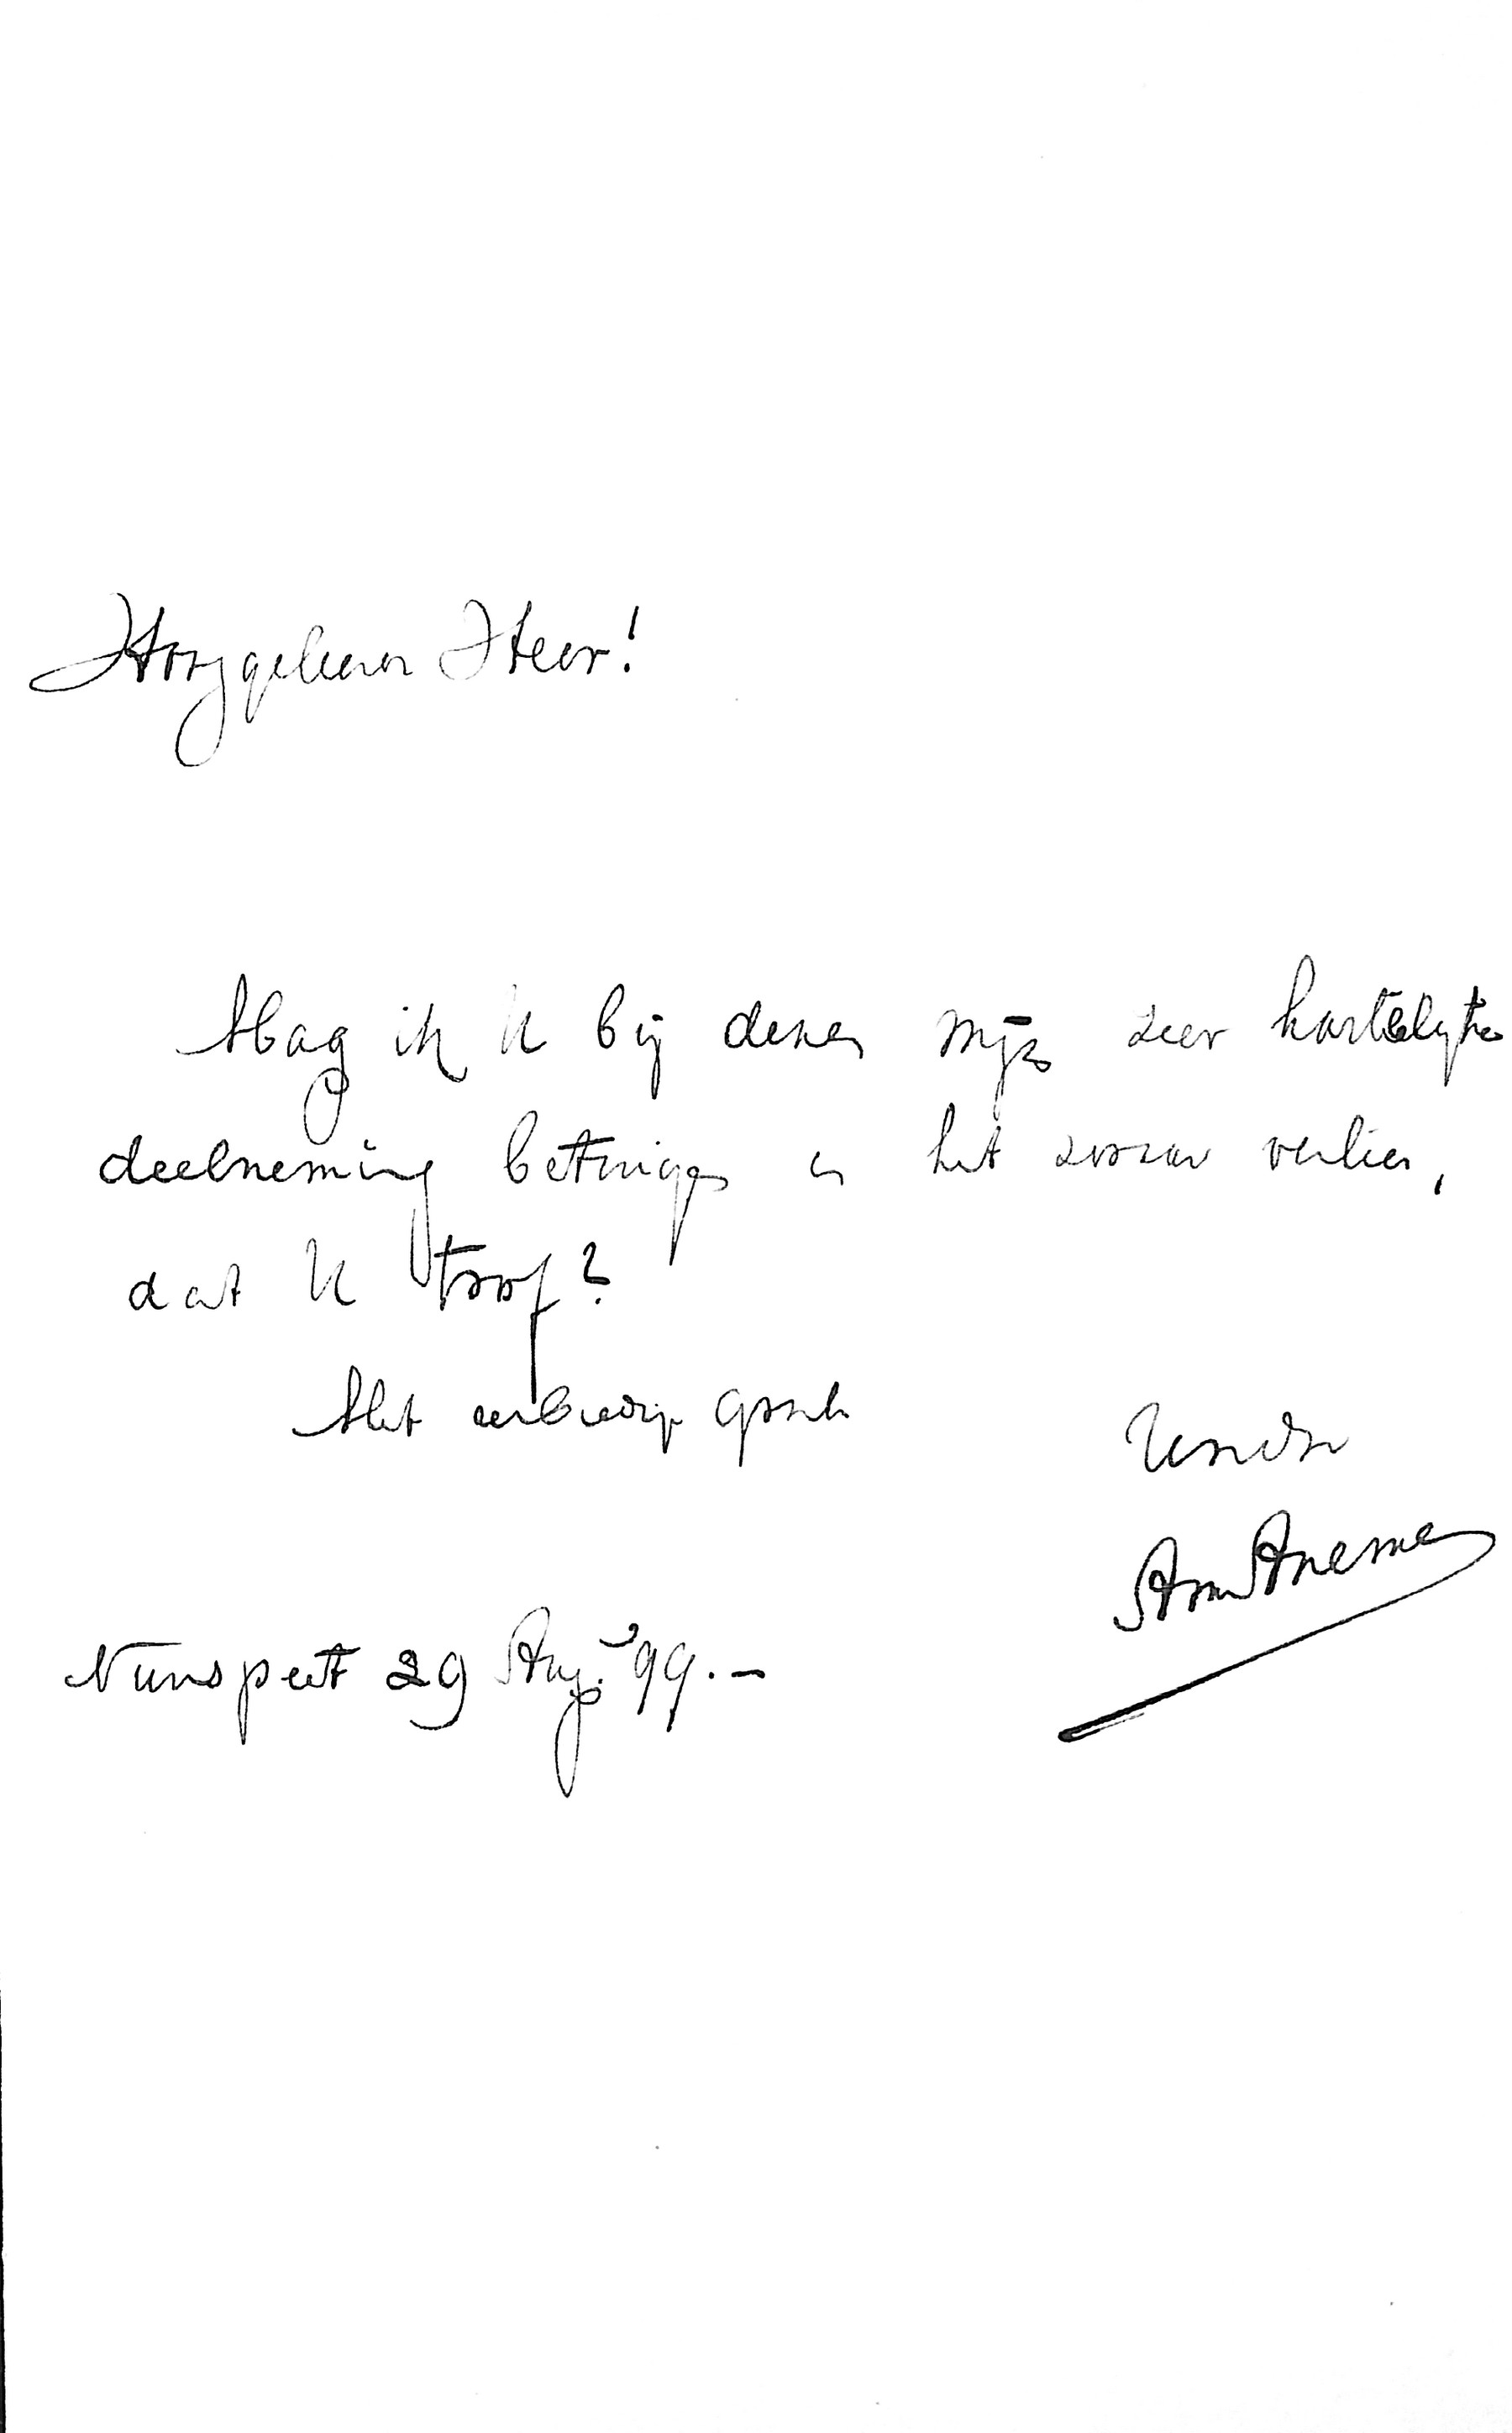 Hooggeleerde Heer!
Mag ik U bij dezen mijn zeer hartelijke
deelneming betuigen in het zware verlies,
dat U trof?
Met eerbiedige groeten
Uwdr
Anema
Nunspeet 29 Aug. '99.—